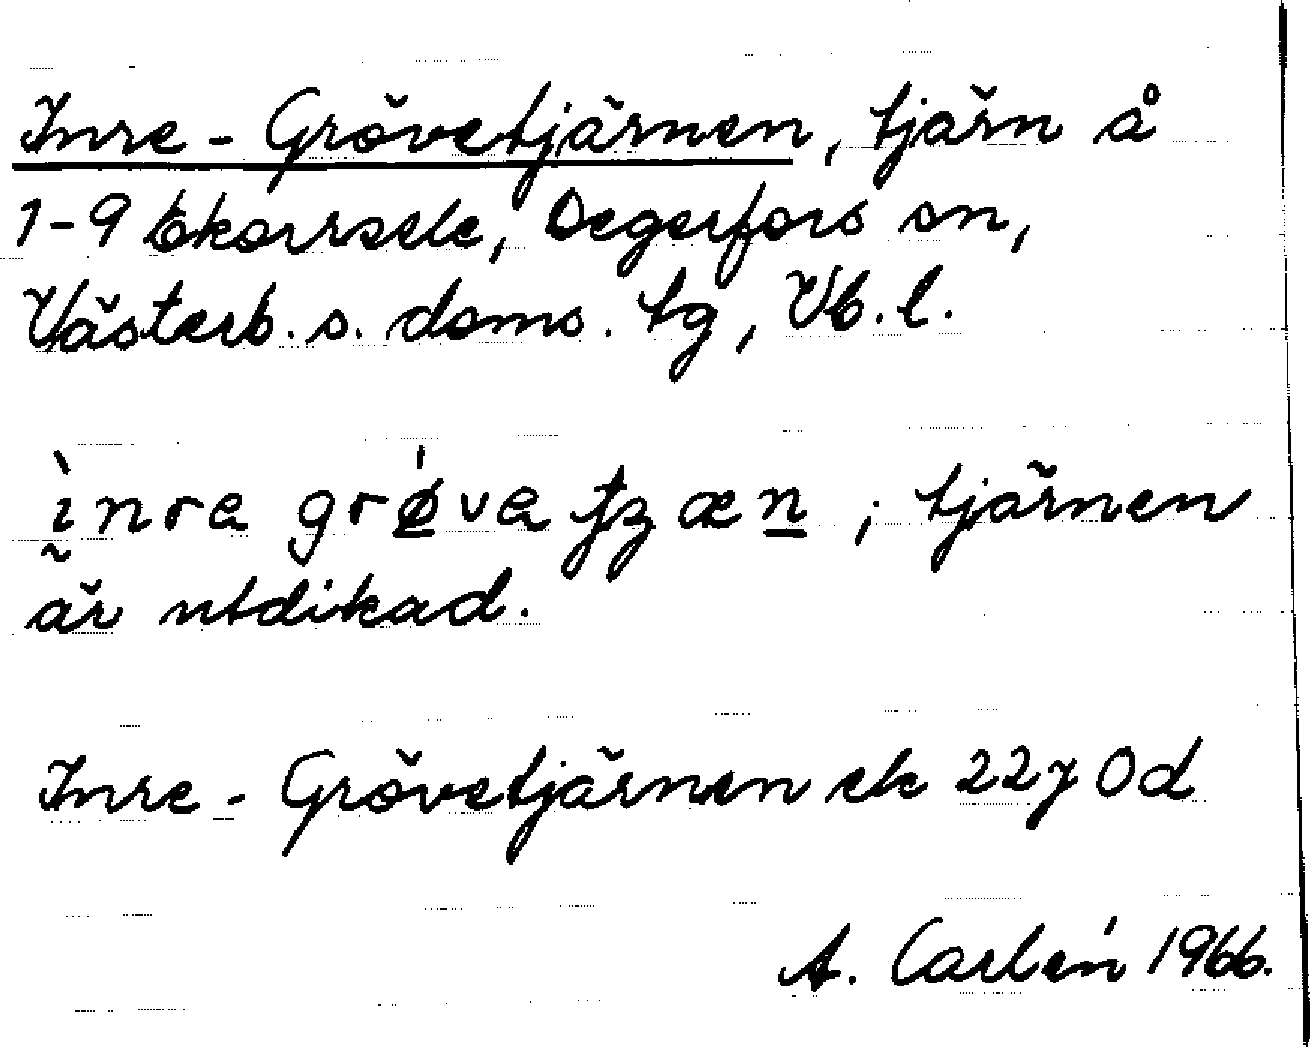 Inre-Grövetjärnen, tjärn å
1-9 Ekorrsele, Degerfors sn,
Västerb. s. doms. tg, Vb. l.
ìnra grǿva ; tjärnen
är utdikad.
Inre-Grövetjärnen ek 22y 0d
A. Carlén 1966.